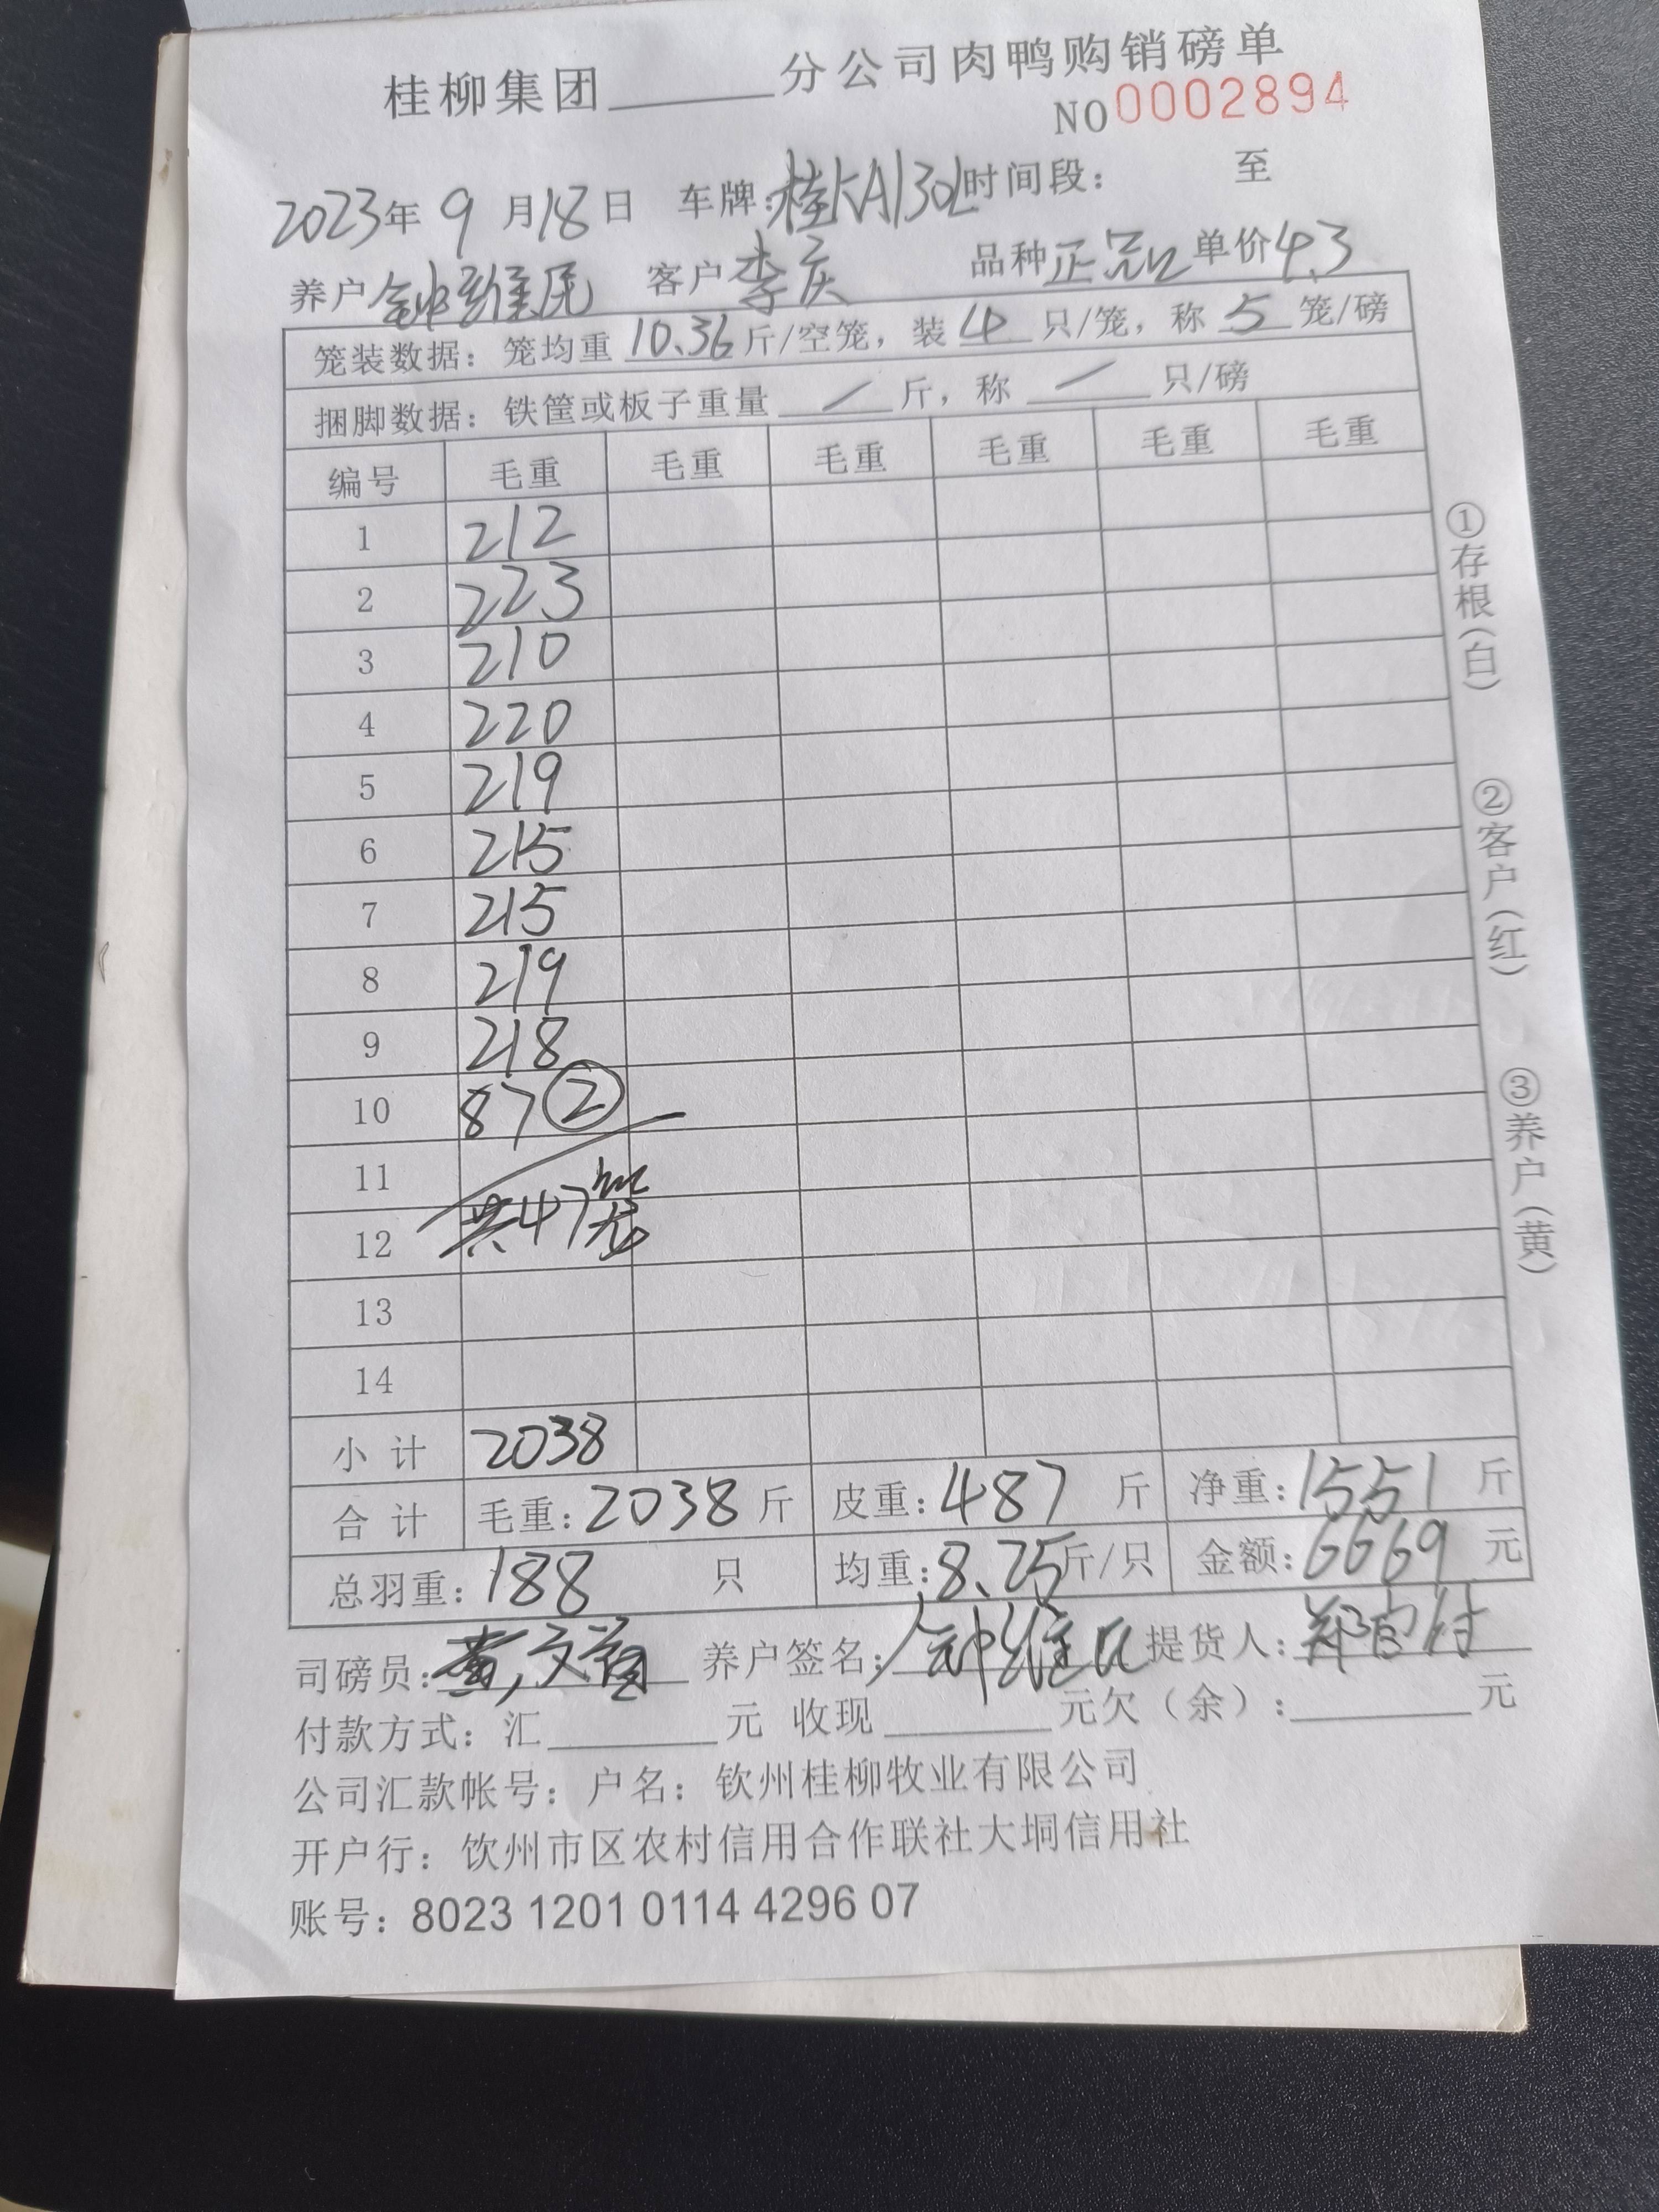 桂柳集团______分公司肉鸭购销磅单
NO 0002894
2023年 9 月 18 日 车牌: 时间段: 至
养户 钟维 客户 李庆 品种 正品 单价 4.3
笼装数据: 笼均重 10.36 斤/空笼, 装 4 只/笼, 称 5 笼/磅
捆脚数据: 铁筐或板子重量 / 斤, 称 / 只/磅
编号 毛重 毛重 毛重 毛重 毛重 毛重
1 212
2 223
3 210
4 220
5 219
6 215
7 215
8 219
9 218
10 87 ②
11
12 共47笼
13
14
小 计 2038
合 计 毛重: 2038 斤 皮重: 487 斤 净重: 1551 斤
总羽重: 188 只 均重: 8.25 斤/只 金额: 6669 元
司磅员: 养户签名: 钟维 提货人:
付款方式: 汇______元 收现______元欠(余):______元
公司汇款帐号: 户名: 钦州桂柳牧业有限公司
开户行: 饮州市区农村信用合作联社大垌信用社
账号: 8023 1201 0114 4296 07
①存根(白)
②客户(红)
③养户(黄)